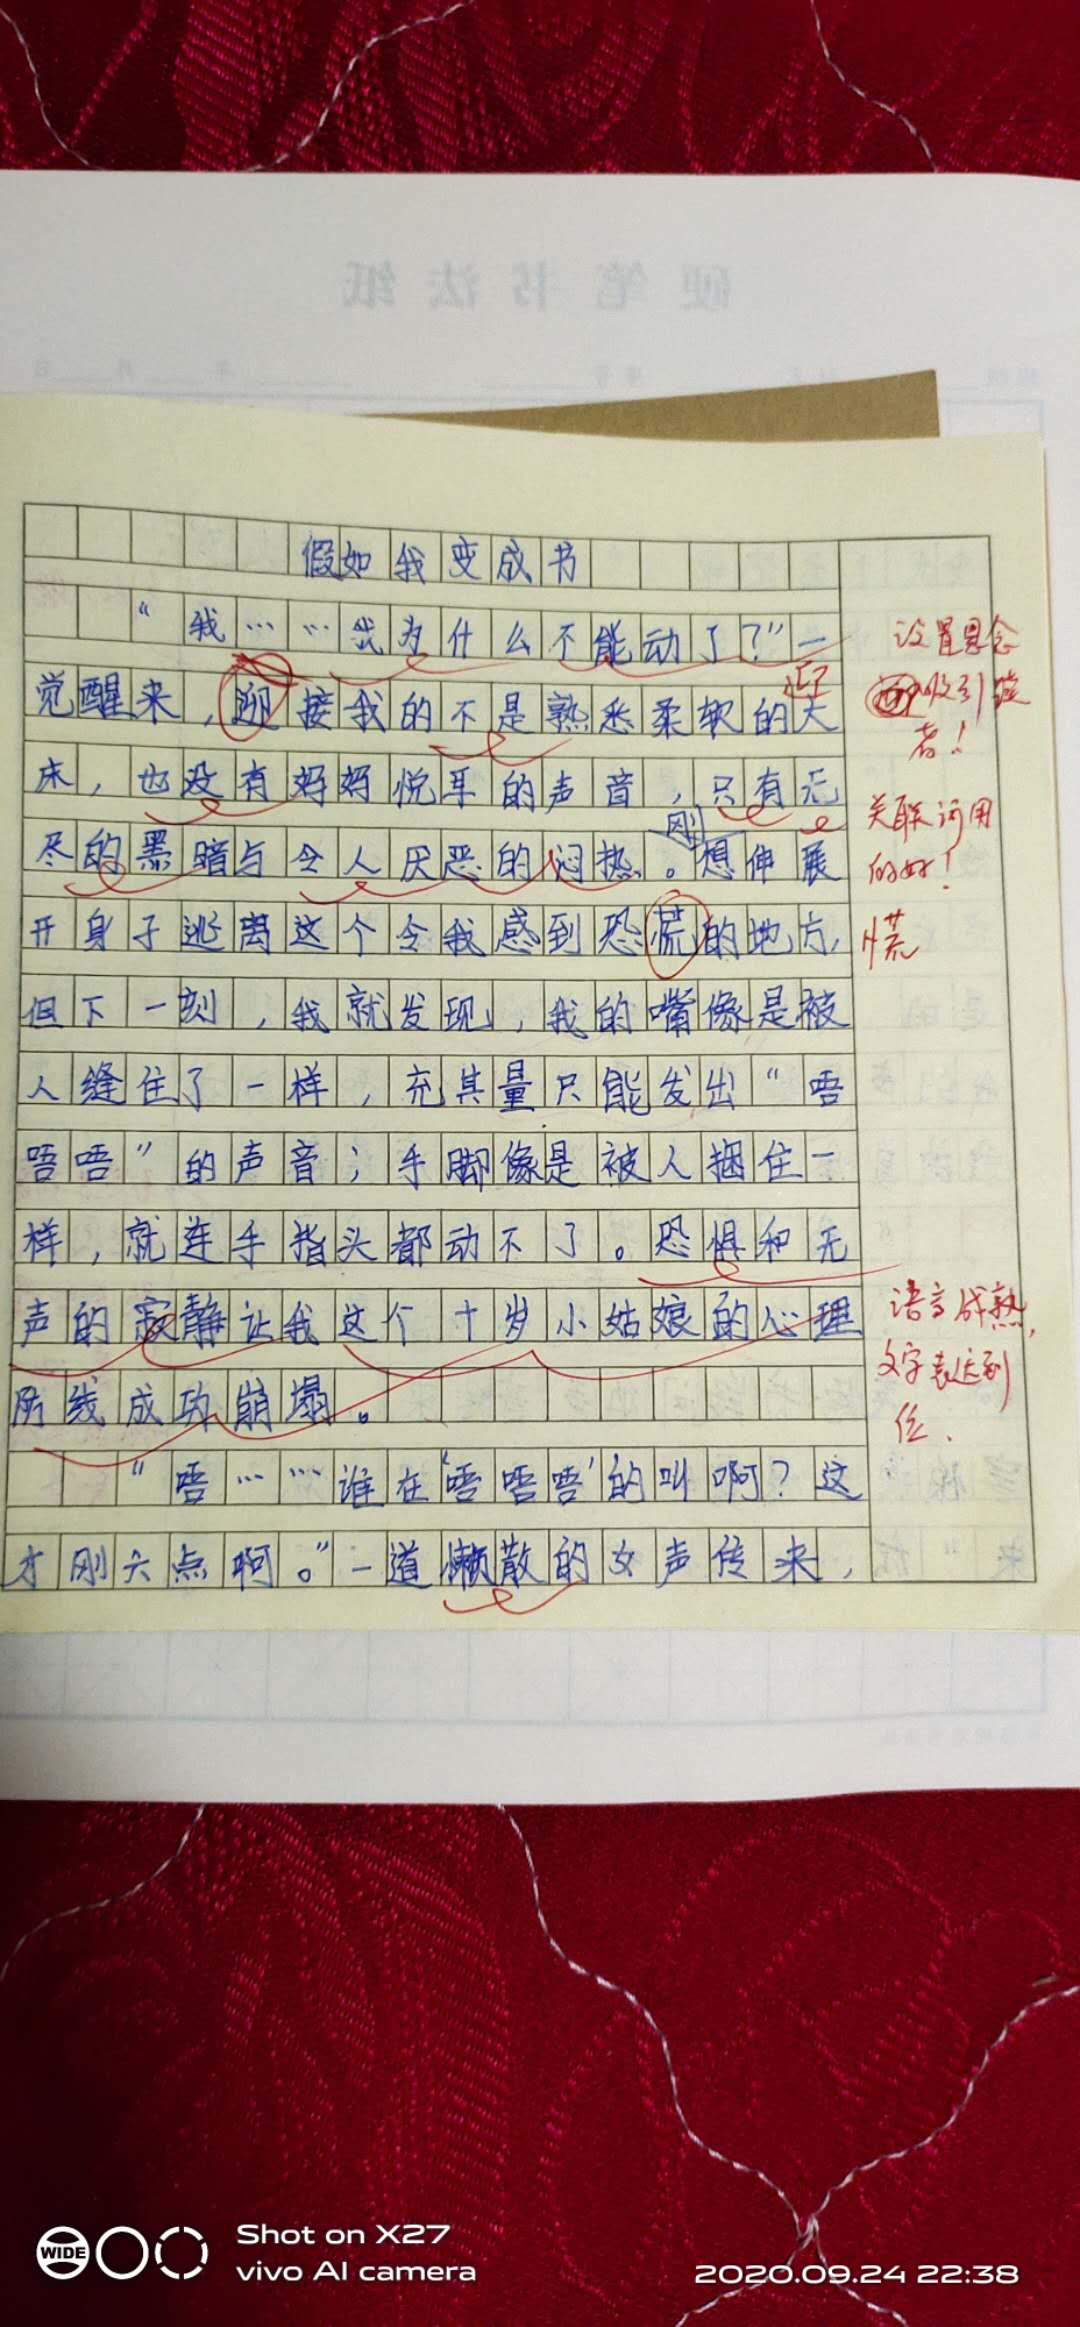 硬笔书法纸
假如我变成书
“我……我为什么不能动了？”一
觉醒来，迎接我的不是熟悉柔软的大
迎
床，也没有妈妈悦耳的声音，只有无
尽的黑暗与令人厌恶的闷热。刚想伸展
开身子逃离这个令我感到恐荒的地方，
但下一刻，我就发现，我的嘴像是被
人缝住了一样，充其量只能发出“唔
唔唔”的声音；手脚像是被人捆住一
样，就连手指头都动不了。恐惧和无
声的寂静让我这个十岁小姑娘的心理
防线成功崩塌。
“唔……谁在‘唔唔唔’的叫啊？这
才刚六点啊。”一道懒散的女声传来，
设置悬念
吸引读
者！
关联词用
的好！
慌
语言成熟，
文字表达到
位．
WIDE
Shot on X27
vivo AI camera
2020.09.24 22:38